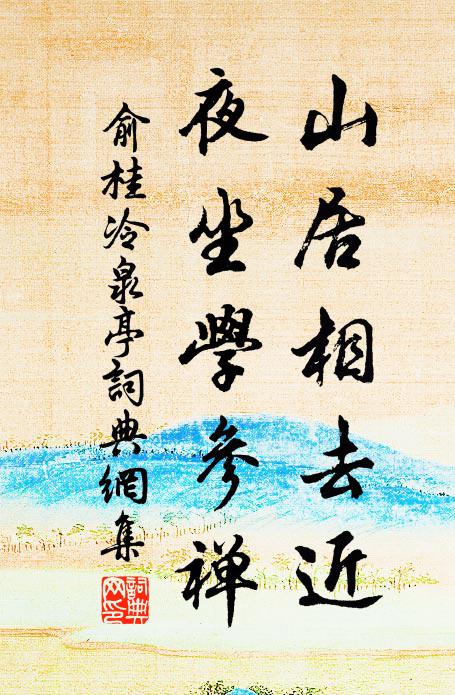 山居相去近
夜坐學參禪
俞桂冷泉亭詞典網集